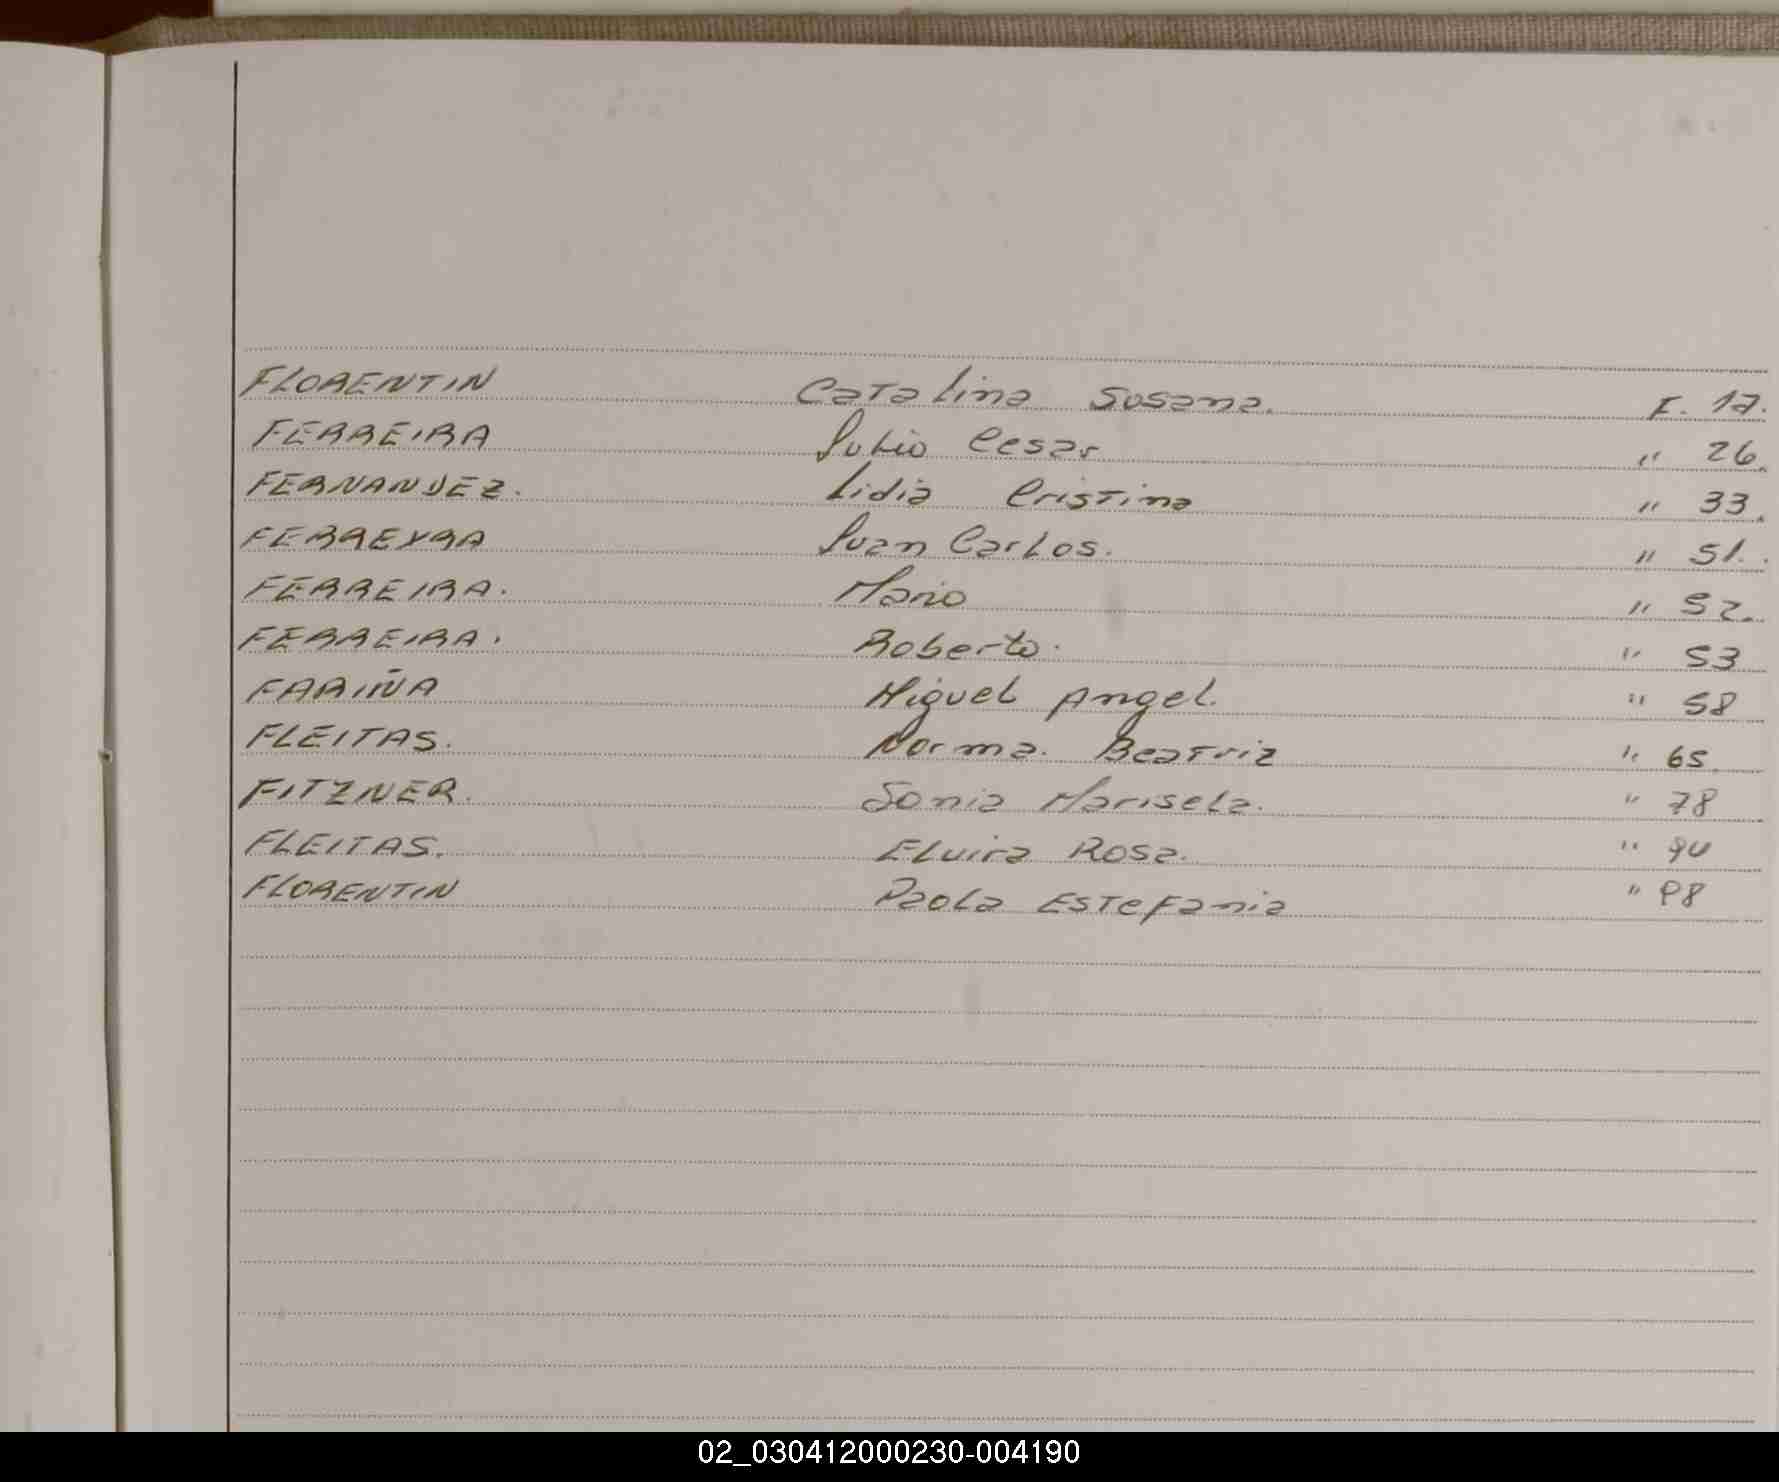 FLORENTIN Catalina Susana. F. 17.
FERREIRA Julio Cesar " 26.
FERNANDEZ. Lidia Cristina " 33.
FERREYRA Juan Carlos. " 51.
FERREIRA. Mario " 52.
FERREIRA. Roberto. " 53
FARIÑA Miguel Angel. " 58
FLEITAS. Norma. Beatriz " 65
FITZNER. Sonia Marisela. " 78
FLEITAS. Elvira Rosa. " 90
FLORENTIN Paola Estefania " 98
02_030412000230-004190